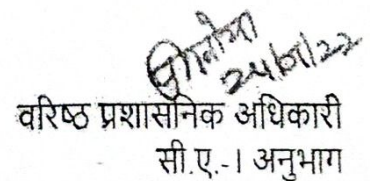 24/01/22
वरिष्ठ प्रशासनिक अधिकारी
सी.ए.-I अनुभाग